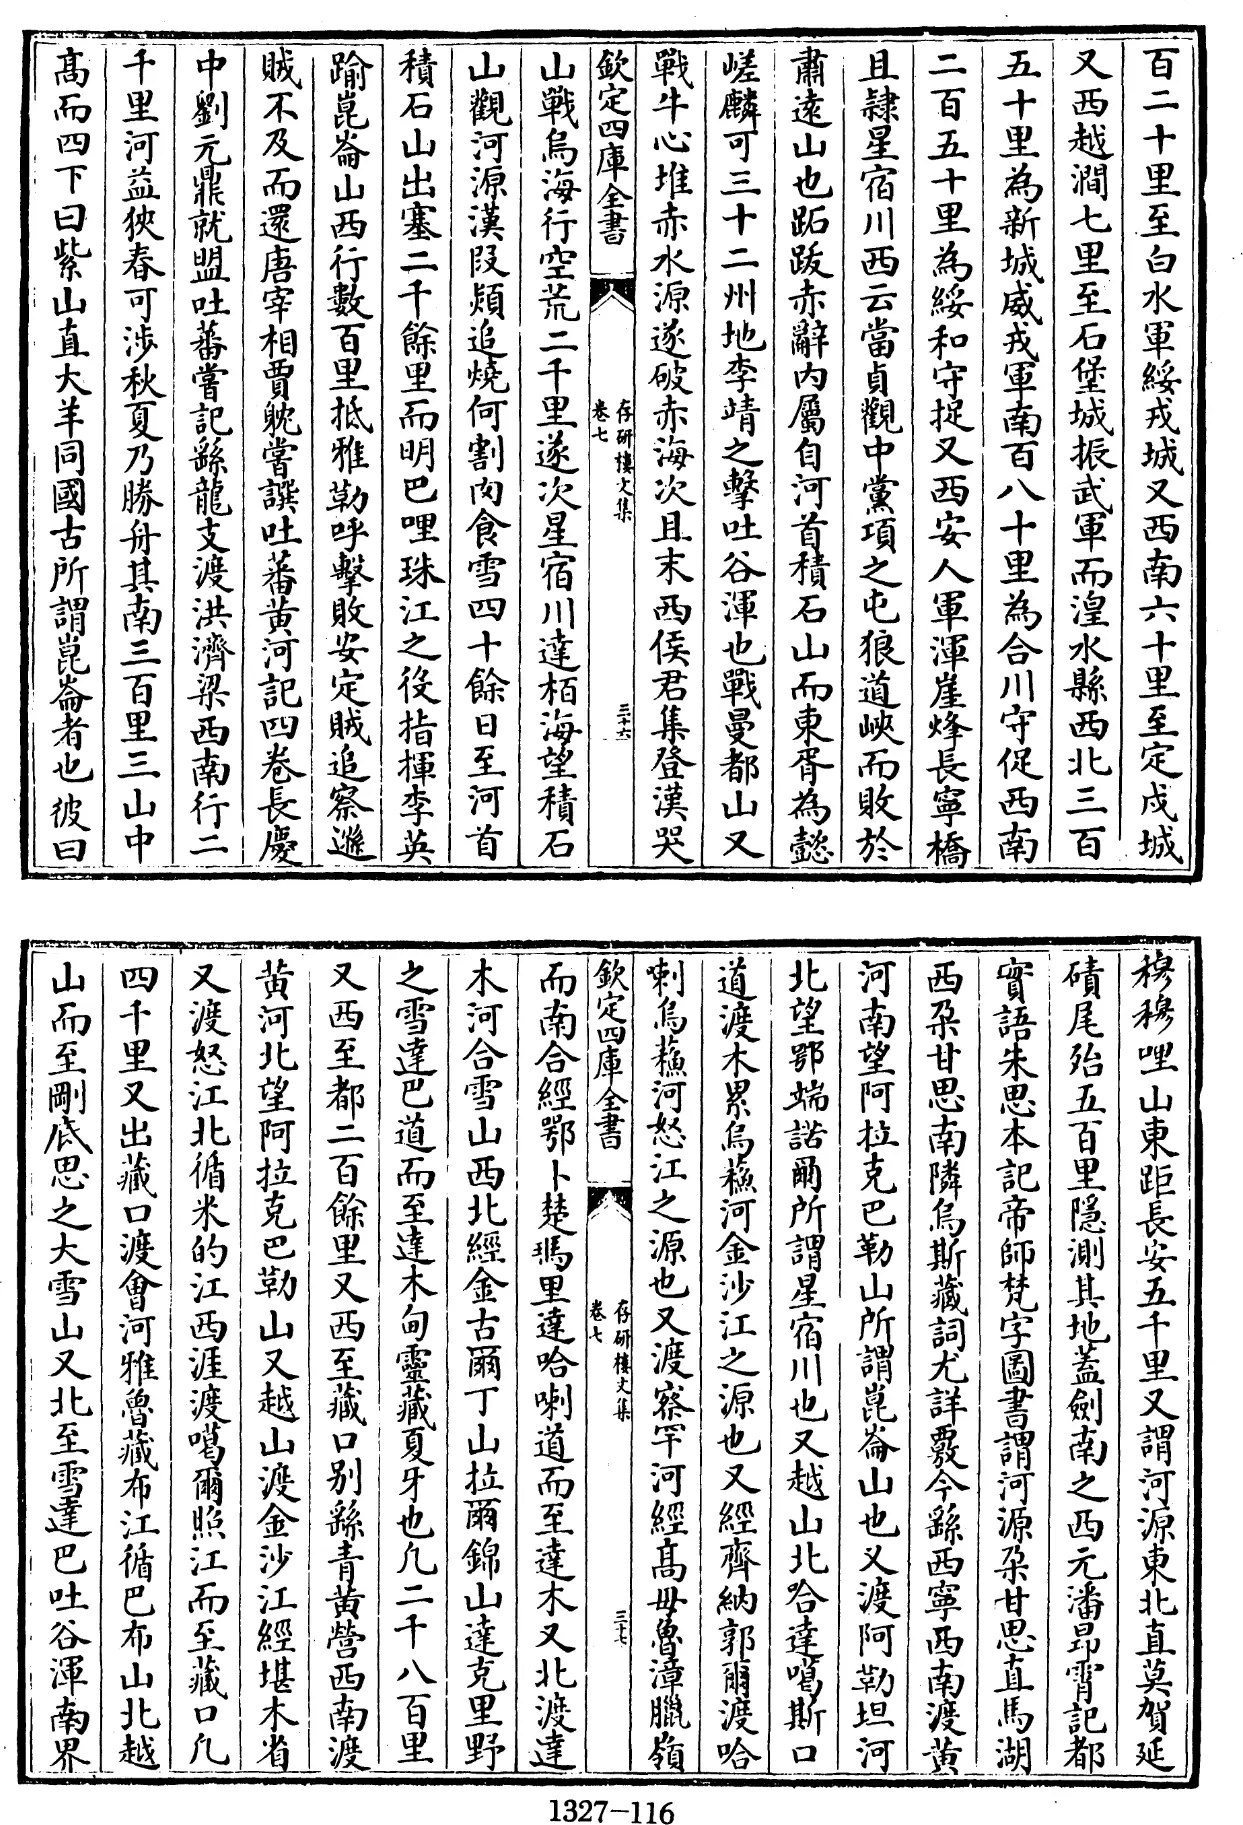 百二十里至白水軍綏戎城又西南六十里至定戍城
又西越澗七里至石堡城振武軍而湟水縣西北三百
五十里為新城威戎軍南百八十里為合川守促西南
二百五十里為綏和守捉又西安人軍渾崖烽長寧橋
且隷星宿川西云當貞觀中黨項之屯狼道峽而敗於
肅遠山也跖跋赤辭内屬自河首積石山而東胥為懿
嵯麟可三十二州地李靖之擊吐谷渾也戰曼都山又
戰牛心堆赤水源遂破赤海次且末西侯君集登漢哭
欽定四庫全書
存研樓文集
卷七
三十六
山戰烏海行空荒二千里遂次星宿川達栢海望積石
山觀河源漢段熲追燒何割肉食雪四十餘日至河首
積石山出塞二千餘里而明巴哩珠江之役指揮李英
踰崑崙山西行數百里抵雅勒呼擊敗安定賊追察遜
賊不及而還唐宰相賈躭嘗譔吐蕃黄河記四卷長慶
中劉元鼎就盟吐蕃嘗記繇龍支渡洪濟梁西南行二
千里河益狹春可涉秋夏乃勝舟其南三百里三山中
高而四下曰紫山直大羊同國古所謂崑崙者也彼曰
穆穆哩山東距長安五千里又謂河源東北直莫賀延
磧尾殆五百里隱測其地蓋劍南之西元潘昻霄記都
實語朱思本記帝師梵字圖書謂河源朶甘思直馬湖
西朶甘思南隣烏斯藏詞尤詳覈今繇西寧西南渡黄
河南望阿拉克巴勒山所謂崑崙山也又渡阿勒坦河
北望鄂端諾爾所謂星宿川也又越山北哈達噶斯口
道渡木累烏蘓河金沙江之源也又經齊納郭爾渡哈
喇烏蘓河怒江之源也又渡察罕河經高毋魯漳臘嶺
欽定四庫全書
存研樓文集
卷七
三十七
而南合經鄂卜楚瑪里達哈喇道而至達木又北渡達
木河合雪山西北經金古爾丁山拉爾錦山達克里野
之雪達巴道而至達木甸靈藏夏牙也凡二千八百里
又西至都二百餘里又西至藏口别繇青黄營西南渡
黄河北望阿拉克巴勒山又越山渡金沙江經堪木省
又渡怒江北循米的江西涯渡噶爾照江而至藏口凡
四千里又出藏口渡會河雅魯藏布江循巴布山北越
山而至剛底思之大雪山又北至雪達巴吐谷渾南界
1327-116